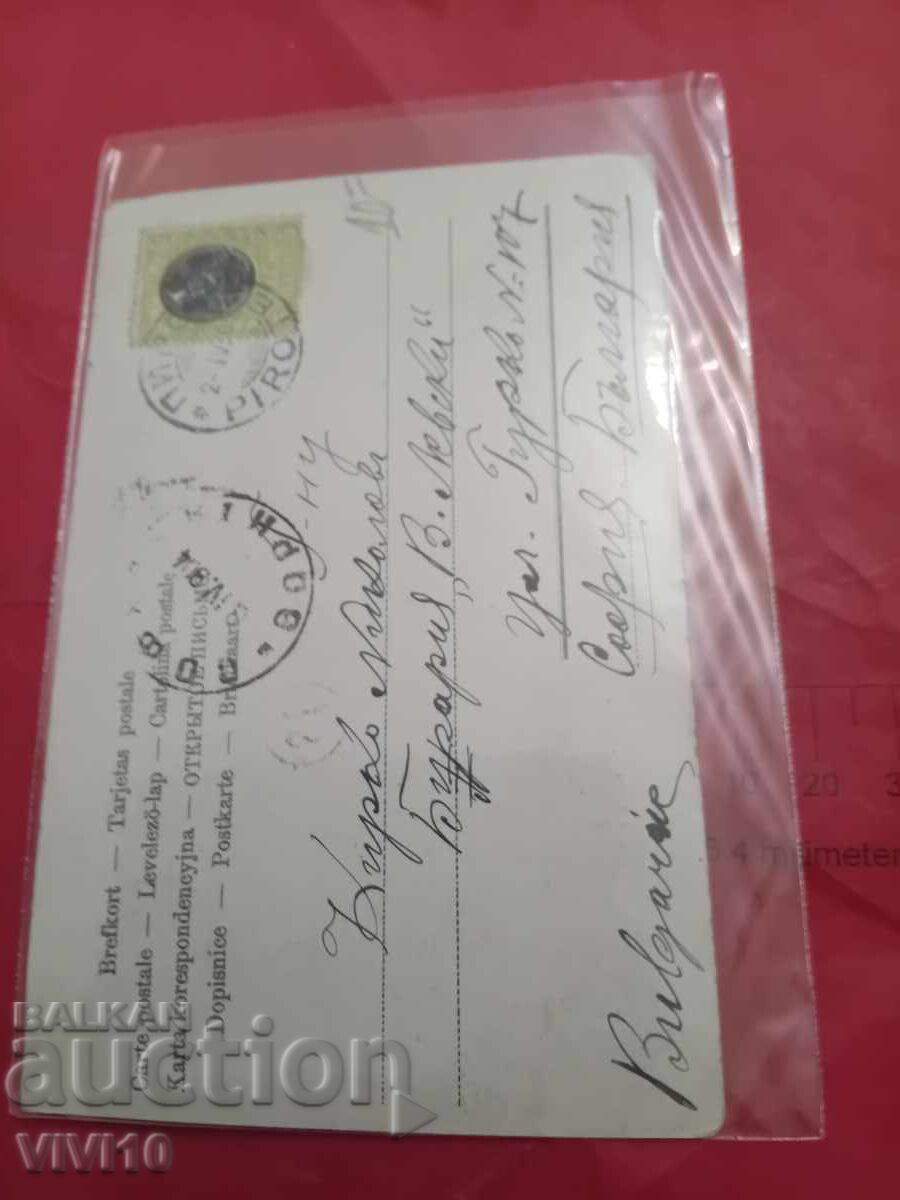 Brefkort — Tarjetas postale
Carte postale — Levelező-lap — Cartolina postale
Karta korespondencyjna — ОТКРЫТОЕ ПИСЬМО
Dopisnice — Postkarte — Briefkaart
10=
PIROT
Кирѝо Николовъ
Бѫкария „В. Левски“
ул. Гурко N: 107
София България
Bulgarie
20
3
4 millimeter
BALKAN
auction
VIVI10